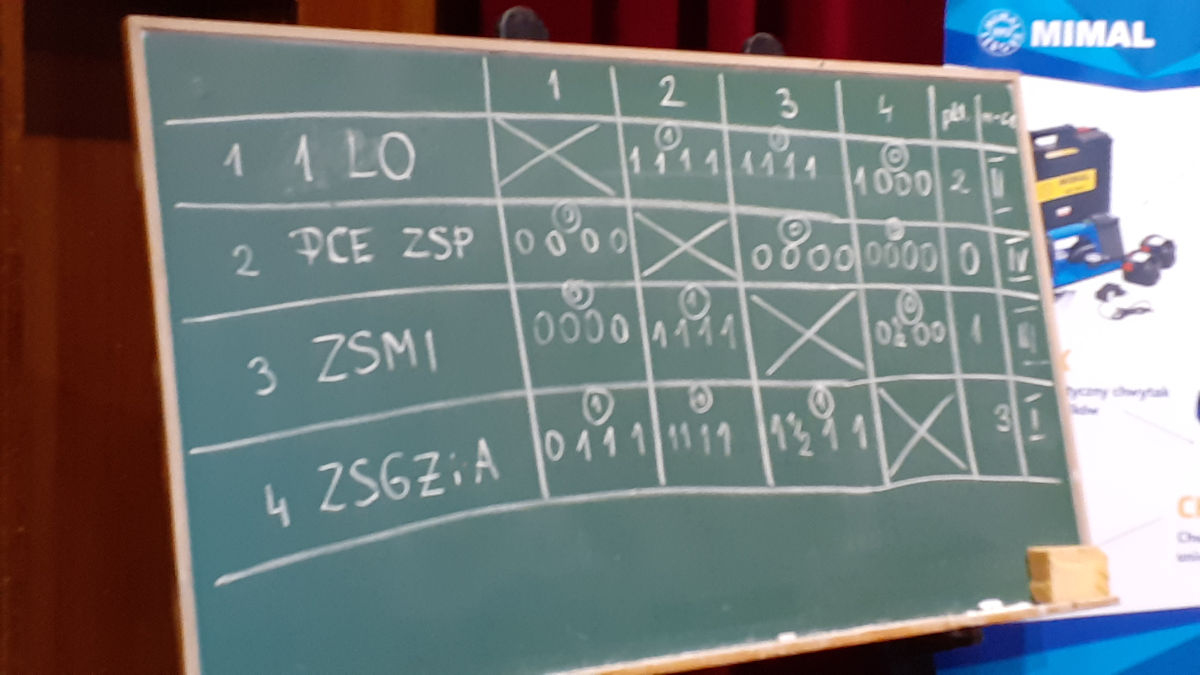 MIMAL
1 2 3 4 pkt. m-ce
1 1 LO 1 1 1 1 1 1 1 1 1 1 0 1 0 0 0 2 II
2 PCE ZSP 0 0 0 0 0 0 0 0 0 0 0 0 0 0 0 0 IV
3 ZSMI 0 0 0 0 0 1 1 1 1 1 0 0 ½ 0 0 1 III
4 ZSGŻiA 1 0 1 1 1 1 1 1 1 1 1 1 ½ 1 1 3 I
tyczny chwytak